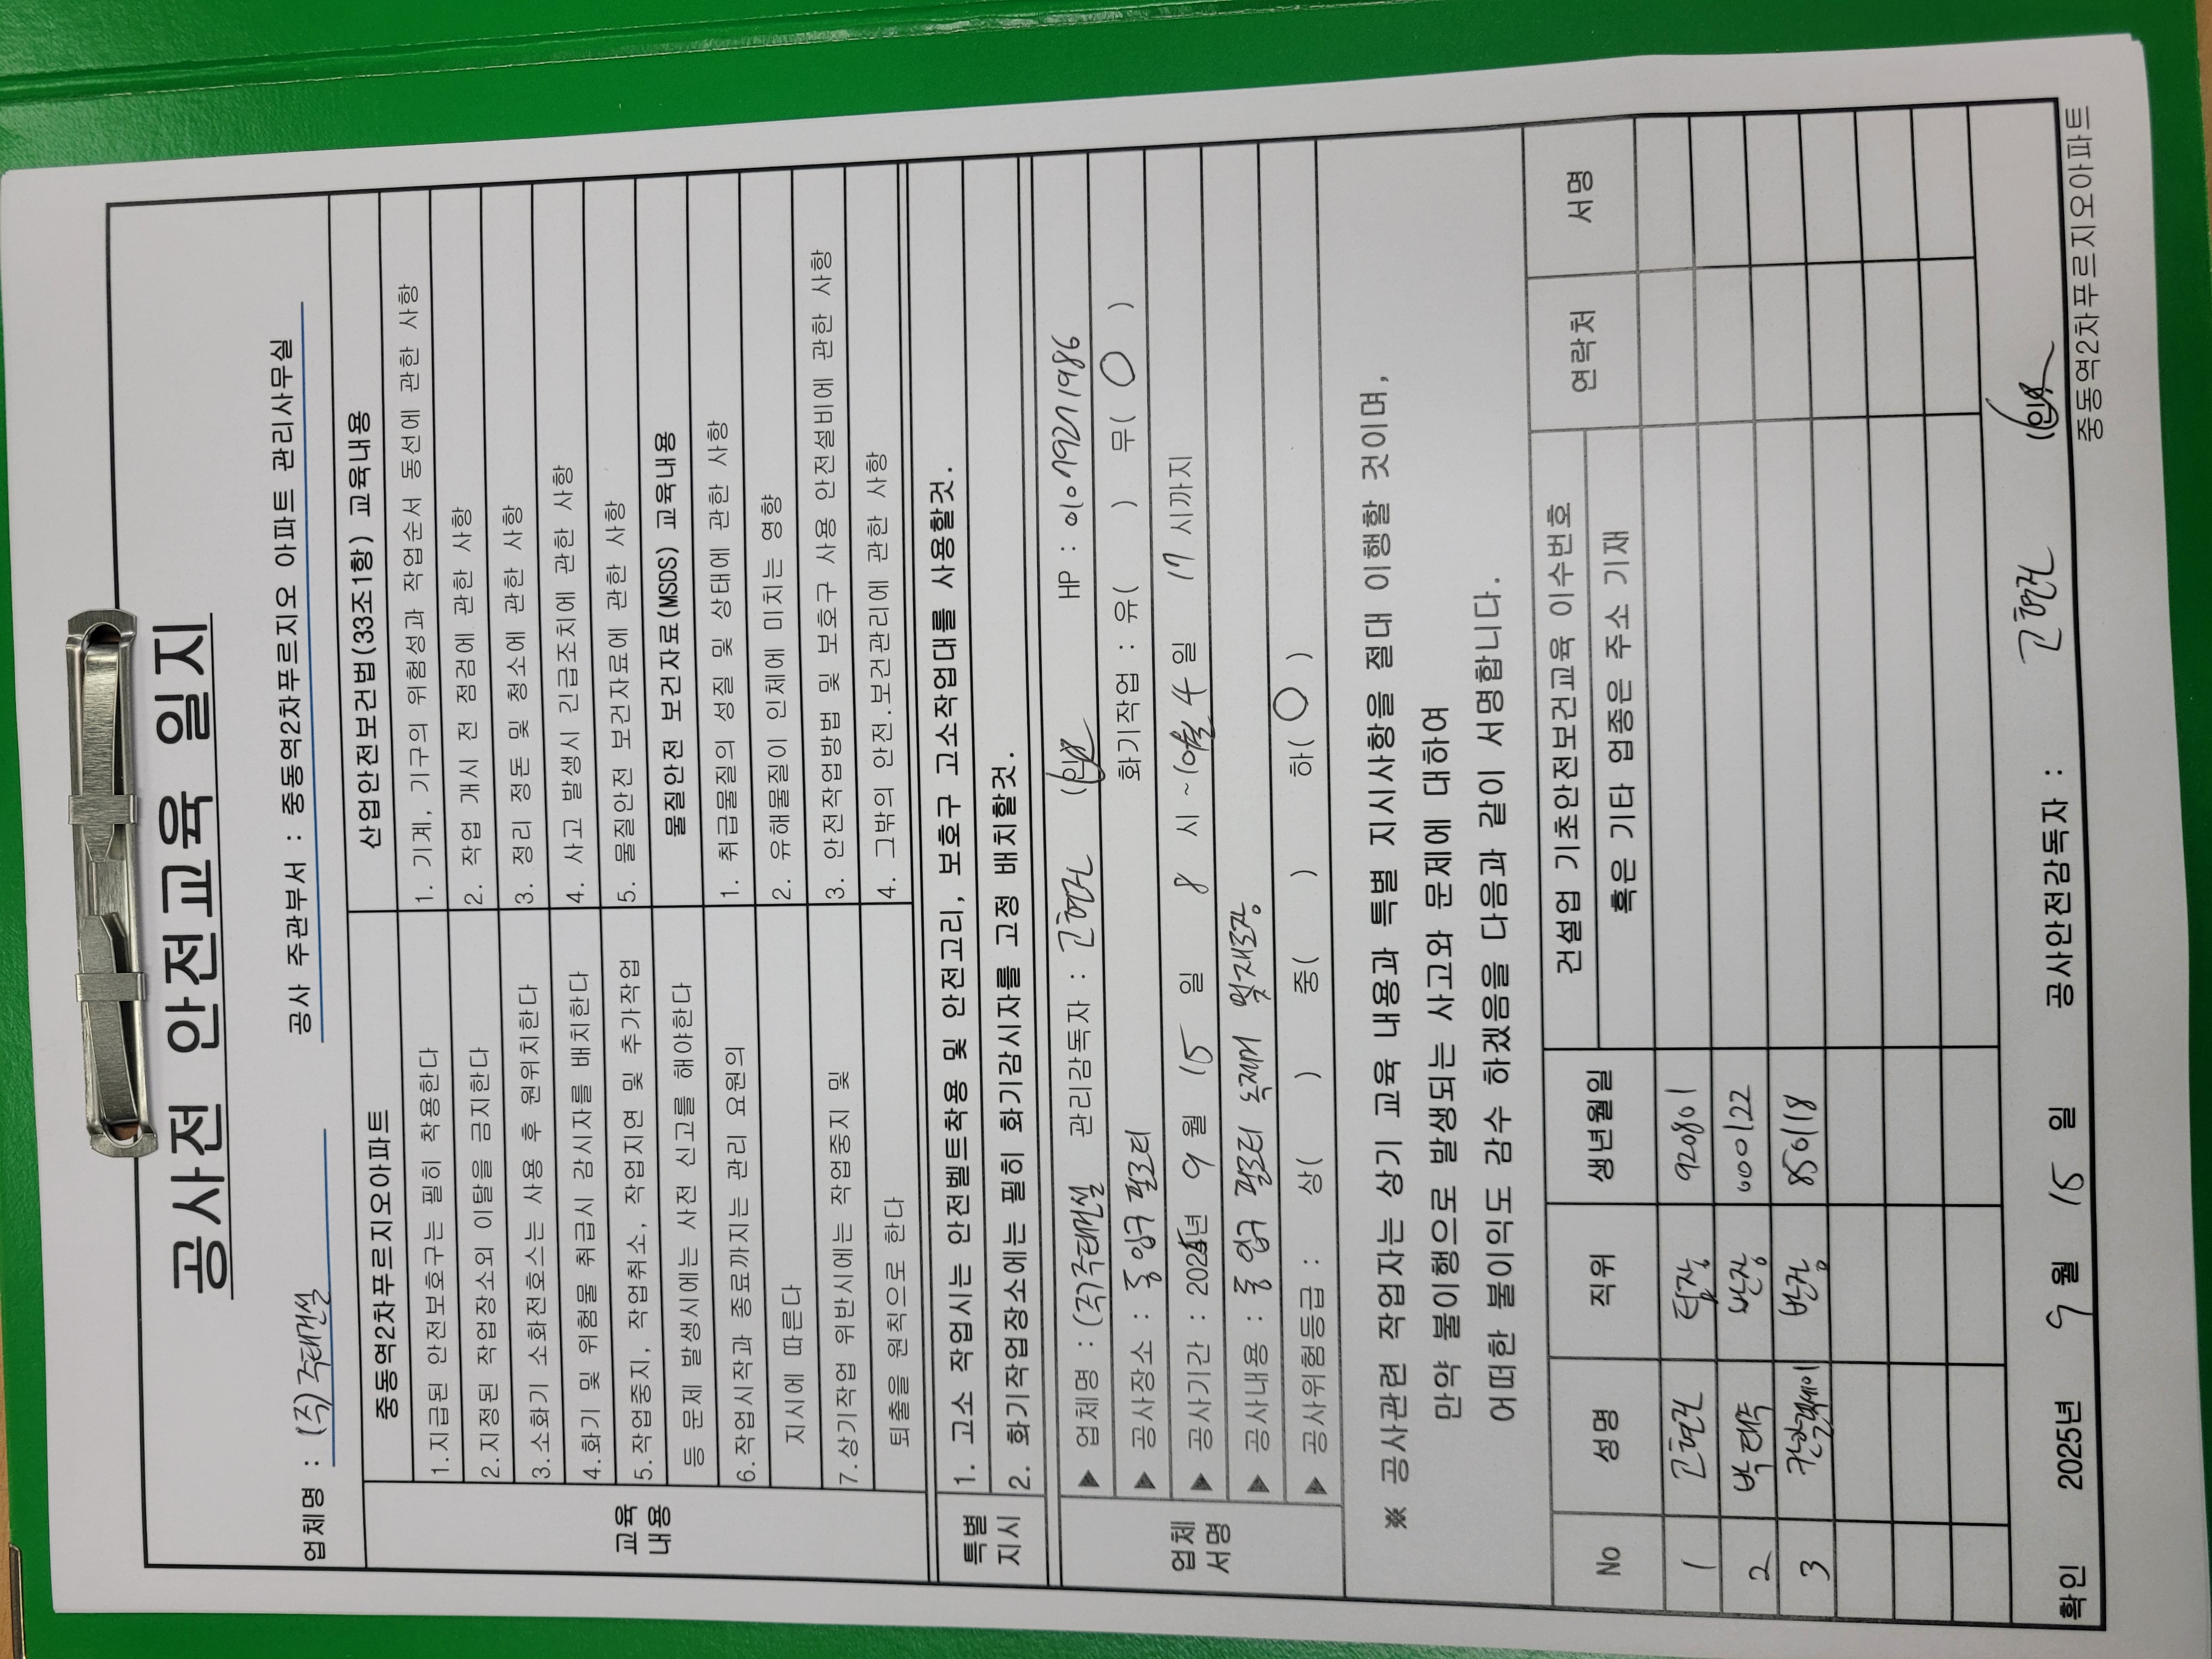 공사전 안전교육 일지
업체명 : (주)주대건설 공사 주관부서 : 중동역2차푸르지오 아파트 관리사무실
교육 내용
중동역2차푸르지오아파트
1.지급된 안전보호구는 필히 착용한다
2.지정된 작업장소외 이탈을 금지한다
3.소화기 소화전호스는 사용 후 원위치한다
4.화기 및 위험물 취급시 감시자를 배치한다
5.작업중지, 작업취소, 작업지연 및 추가작업
등 문제 발생시에는 사전 신고를 해야한다
6.작업시작과 종료까지는 관리 요원의
지시에 따른다
7.상기작업 위반시에는 작업중지 및
퇴출을 원칙으로 한다
산업안전보건법(33조1항) 교육내용
1. 기계, 기구의 위험성과 작업순서 동선에 관한 사항
2. 작업 개시 전 점검에 관한 사항
3. 정리 정돈 및 청소에 관한 사항
4. 사고 발생시 긴급조치에 관한 사항
5. 물질안전 보건자료에 관한 사항
물질안전 보건자료(MSDS) 교육내용
1. 취급물질의 성질 및 상태에 관한 사항
2. 유해물질이 인체에 미치는 영향
3. 안전작업방법 및 보호구 사용 안전설비에 관한 사항
4. 그밖의 안전.보건관리에 관한 사항
특별 지시
1. 고소 작업시는 안전벨트착용 및 안전고리, 보호구 고소작업대를 사용할것.
2. 화기작업장소에는 필히 화기감시자를 고정 배치할것.
업체 서명
▶ 업체명 : (주)주대건설 관리감독자 : 고현건 (인) HP : 010 7927 1986
▶ 공사장소 : 동 입구 필로티 화기작업 : 유( ) 무( ○ )
▶ 공사기간 : 2025년 9월 15일 8시 ~ 일 17시까지
▶ 공사내용 : 동 입구 필로티 목재 도장
▶ 공사위험등급 : 상( ) 중( ) 하( ○ )
※ 공사관련 작업자는 상기 교육 내용과 특별 지시사항을 절대 이행할 것이며,
만약 불이행으로 발생되는 사고와 문제에 대하여
어떠한 불이익도 감수 하겠음을 다음과 같이 서명합니다.
No 성명 직위 생년월일 건설업 기초안전보건교육 이수번호 혹은 기타 업종은 주소 기재 연락처 서명
1 고현건 팀장 920801
2 박태약 반장 600122
3 반장 850118
확인 2025년 9월 15일 공사안전감독자 : 고현건 (인)
중동역2차푸르지오아파트